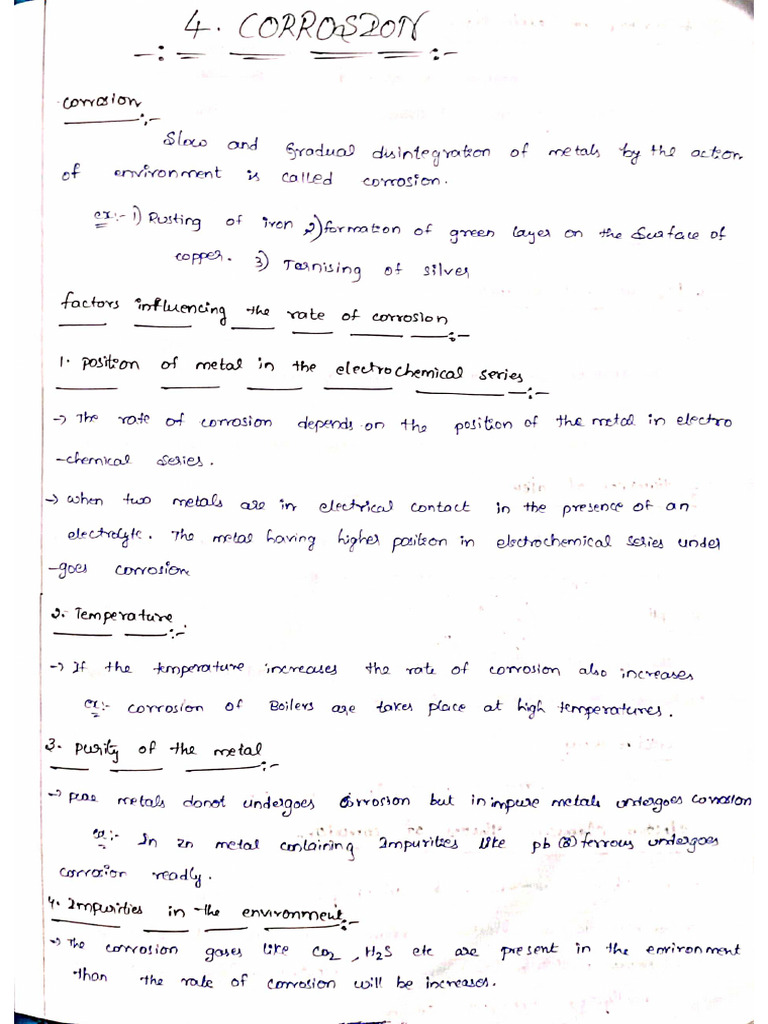 4. CORROSION
Corrosion
Slow and Gradual disintegration of metals by the action
of environment is called corrosion.
ex:- 1) Rusting of iron 2) formation of green layer on the Surface of
copper. 3) Tarnising of silver
factors influencing the rate of corrosion
1. position of metal in the electrochemical series
→ The rate of corrosion depends on the position of the metal in electro
-chemical series.
→ when two metals are in electrical contact in the presence of an
electrolyte. The metal having higher position in electrochemical series under
-goes corrosion
2. Temperature
→ If the temperature increases the rate of corrosion also increases
ex:- corrosion of Boilers are takes place at high temperatures.
3. purity of the metal
→ pure metals donot undergoes Corrosion but in impure metals undergoes corrosion
ex:- In zn metal containing Impurities like pb (or) ferrous undergoes
corrosion readly.
4. Impurities in the environment
→ The corrosion gases like CO2, H2S etc are present in the environment
than the rate of corrosion will be increases.